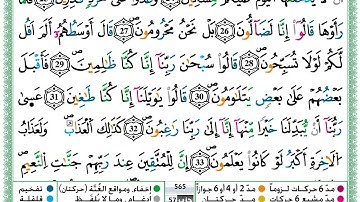 رَأَوْهَا قَالُوٓا۟ إِنَّا لَضَآلُّونَ (26) بَلْ نَحْنُ مَحْرُومُونَ (27) قَالَ أَوْسَطُهُمْ أَلَمْ أَقُل
لَّكُمْ لَوْلَا تُسَبِّحُونَ (28) قَالُوا۟ سُبْحَٰنَ رَبِّنَآ إِنَّا كُنَّا ظَٰلِمِينَ (29) فَأَقْبَلَ
بَعْضُهُمْ عَلَىٰ بَعْضٍ يَتَلَٰوَمُونَ (30) قَالُوا۟ يَٰوَيْلَنَآ إِنَّا كُنَّا طَٰغِينَ (31) عَسَىٰ
رَبُّنَآ أَن يُبْدِلَنَا خَيْرًا مِّنْهَآ إِنَّآ إِلَىٰ رَبِّنَا رَٰغِبُونَ (32) كَذَٰلِكَ ٱلْعَذَابُ ۖ وَلَعَذَابُ
ٱلْـَٔاخِرَةِ أَكْبَرُ ۚ لَوْ كَانُوا۟ يَعْلَمُونَ (33) إِنَّ لِلْمُتَّقِينَ عِندَ رَبِّهِمْ جَنَّٰتِ ٱلنَّعِيمِ
مدّ 6 حركات لزوماً مدّ 2 أو 4 أو 6 جوازاً 565 إخفاء، ومواقع الغُنَّة (حركتان) تفخيم
مدّ مشبع 6 حركات مدّ حركتان 57 إدغام، وما لا يُلفَظ قلقلة